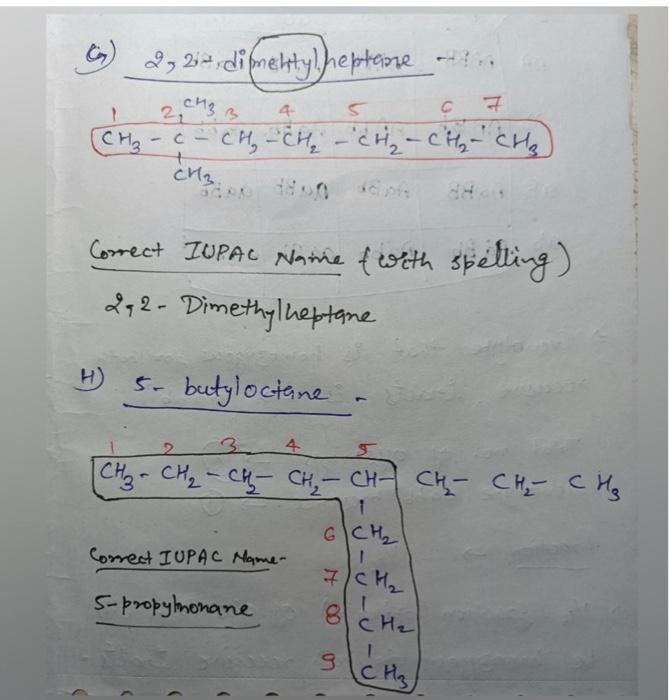 G) 2,2-dimehtylheptane -
1 2 CH3 3 4 5 6 7
CH3 - C - CH2 - CH2 - CH2 - CH2 - CH3
CH3
Correct IUPAC Name (with spelling)
2,2 - Dimethylheptane
H) 5- butyloctane -
1 2 3 4 5
CH3 - CH2 - CH2 - CH2 - CH - CH2 - CH2 - CH3
6 CH2
Correct IUPAC Name-
7 CH2
5-propylnonane
8 CH2
9 CH3